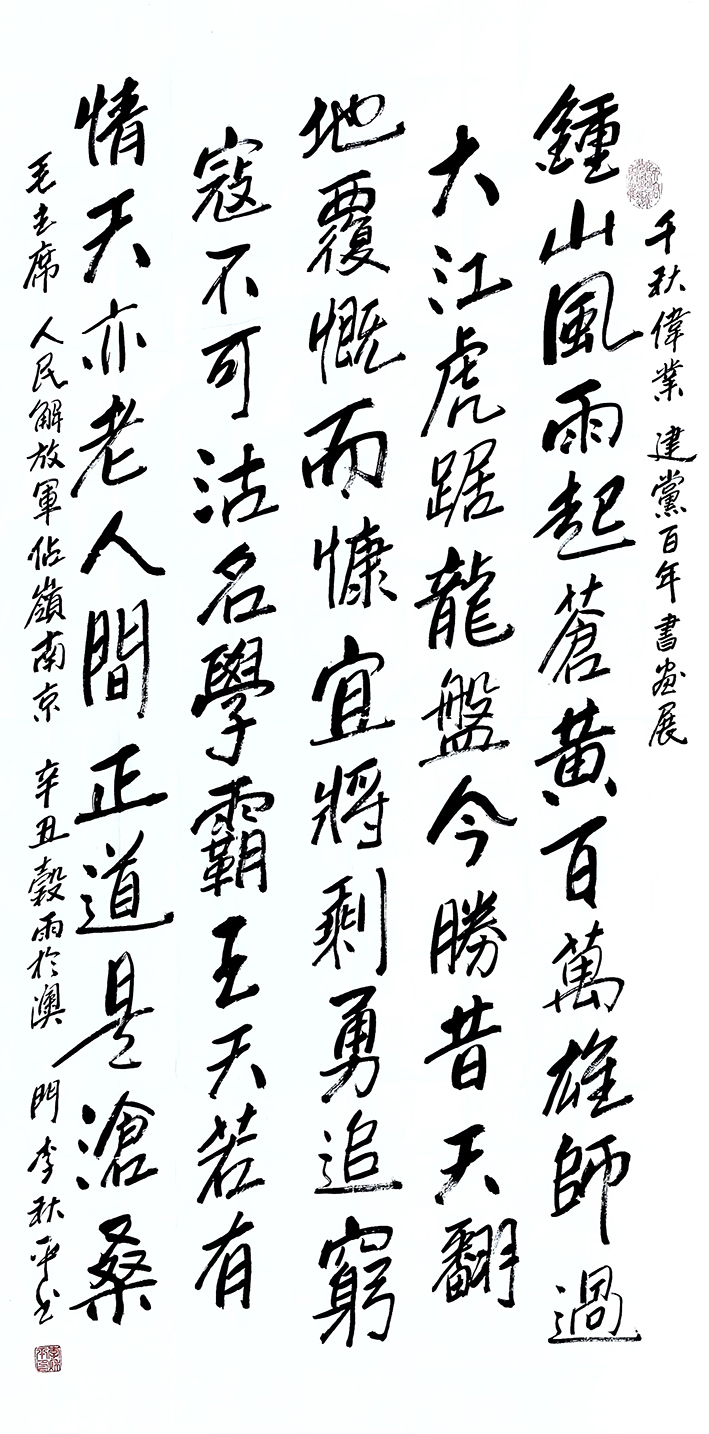 千秋偉業 建黨百年書畫展
鍾山風雨起蒼黄百萬雄師過
大江虎踞龍盤今勝昔天翻
地覆慨而慷宜將剩勇追窮
寇不可沽名學霸王天若有
情天亦老人間正道是滄桑
毛主席 人民解放軍佔嶺南京 辛丑穀雨於澳門李秋平书